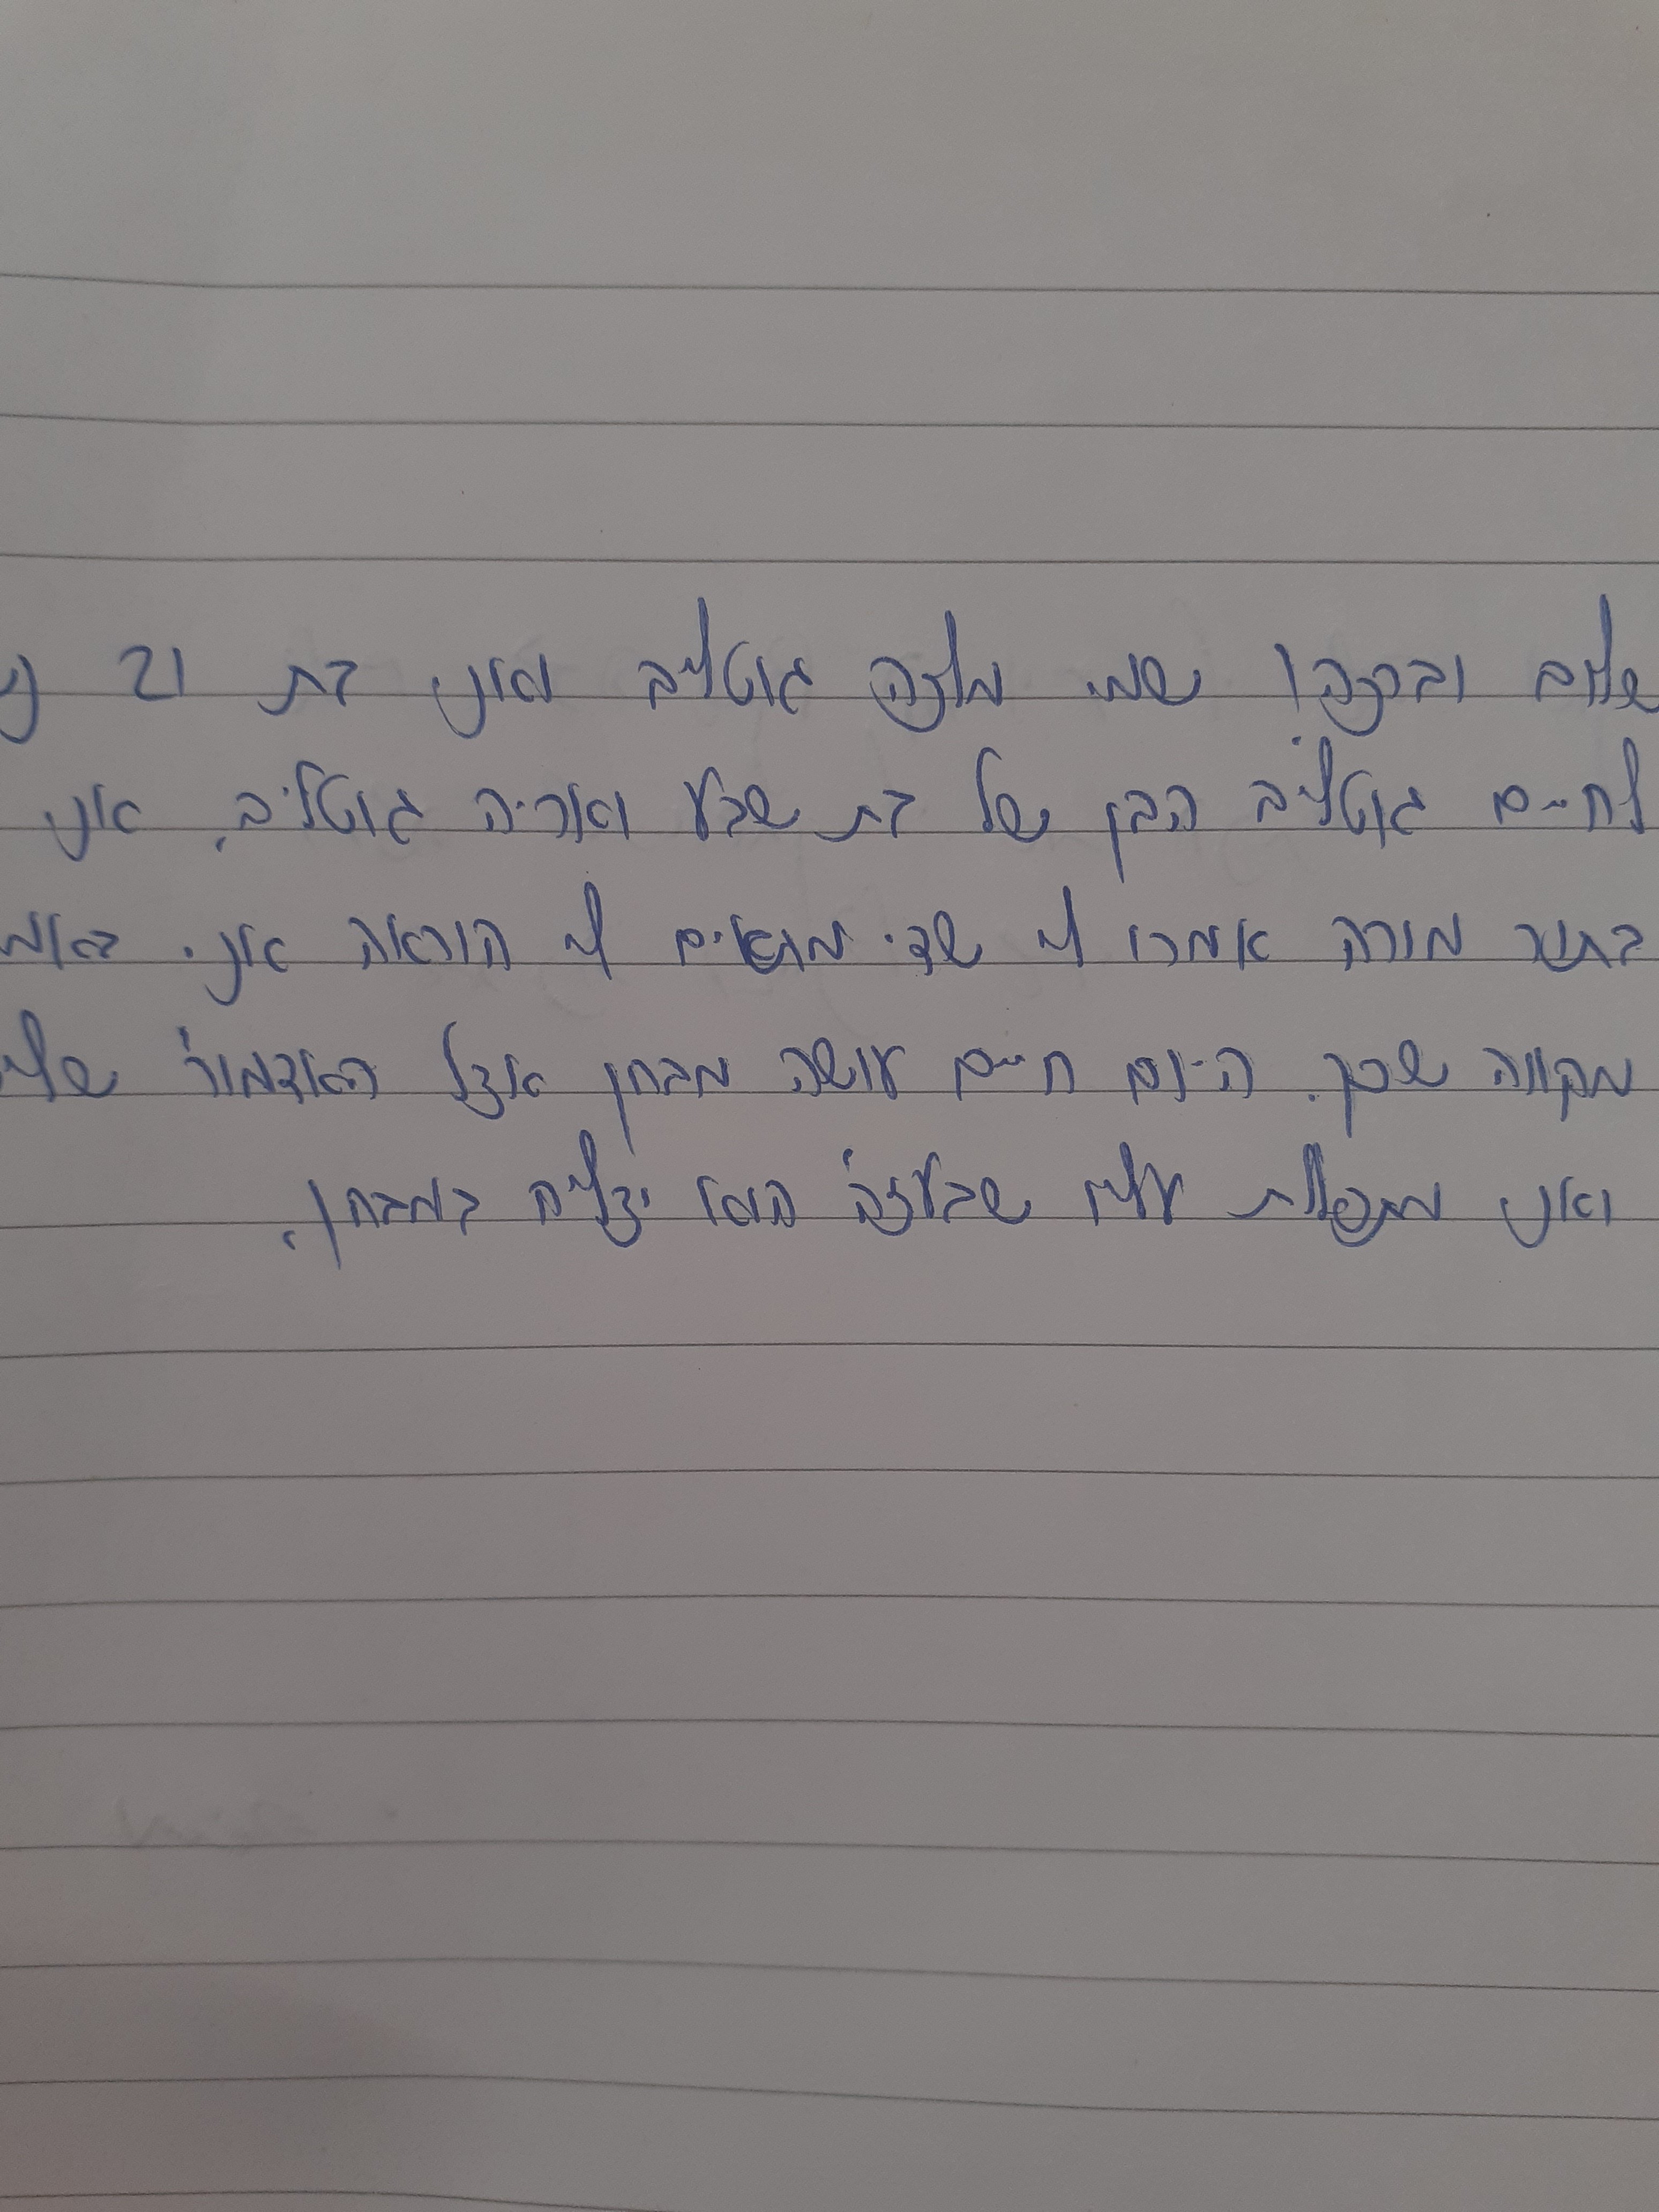 שלום וברכה! שמי מלכה גוטליב ואני בת 21
לחיים גוטליב הבן של בת שבע ואריה גוטליב, אני
בתור מורה אמרו לי שדי מתאים לי הוראה אני.
מקווה שכך. היום חיים עושה מבחן אצל האדמו"ר שליט
ואני מתפללת עליו שבעז"ה הוא יצליח במבחן.